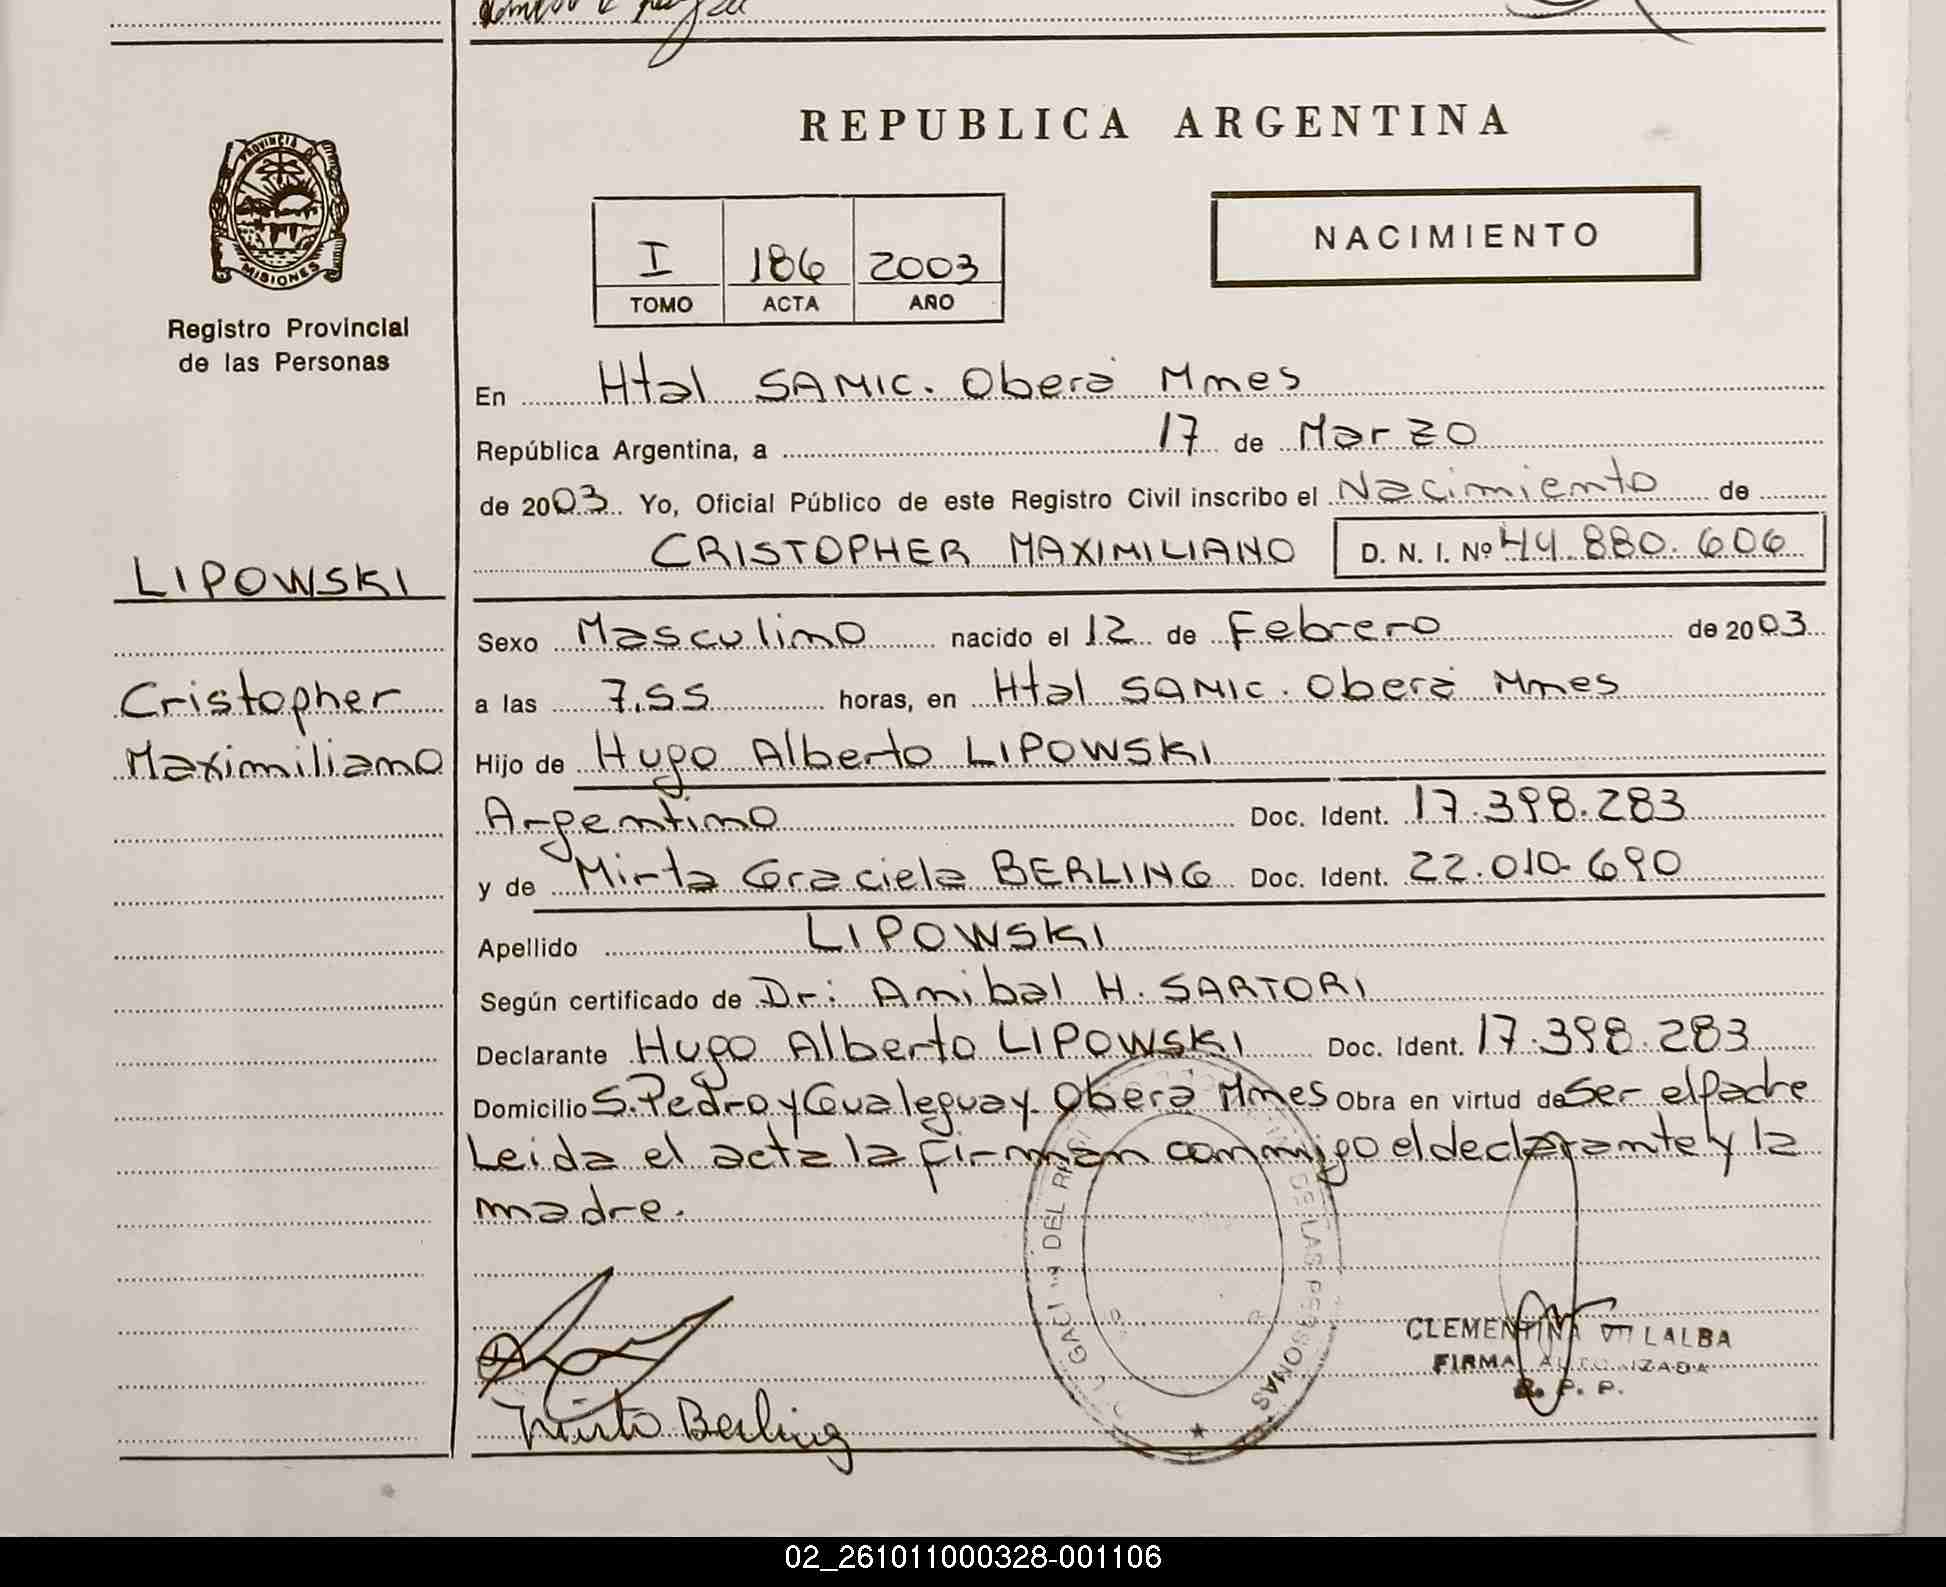 REPUBLICA ARGENTINA
PROVINCIA DE MISIONES
Registro Provincial
de las Personas
I 186 2003
TOMO ACTA AÑO
NACIMIENTO
En Htal SAMIC. Oberá Mnes
República Argentina, a 17 de Marzo
de 2003 Yo, Oficial Público de este Registro Civil inscribo el Nacimiento de
CRISTOPHER MAXIMILIANO D. N. I. Nº 44.880.606
LIPOWSKI
Cristopher
Maximiliano
Sexo Masculino nacido el 12 de Febrero de 2003
a las 7.55 horas, en Htal SAMIC. Oberá Mnes
Hijo de Hugo Alberto LIPOWSKI
Argentino Doc. Ident. 17.398.283
y de Mirta Graciela BERLING Doc. Ident. 22.010.690
Apellido LIPOWSKI
Según certificado de Dr: Anibal H. SARTORI
Declarante Hugo Alberto LIPOWSKI Doc. Ident. 17.398.283
Domicilio S. Pedro y Gualeguay Oberá Mnes Obra en virtud de Ser el Padre
Leida el acta la firman conmigo el declarante y la
madre.
DEL DE LAS PERSONAS
CLEMENTINA VILLALBA
FIRMA AUTORIZADA
R. P. P.
Mirta Berling
02_261011000328-001106